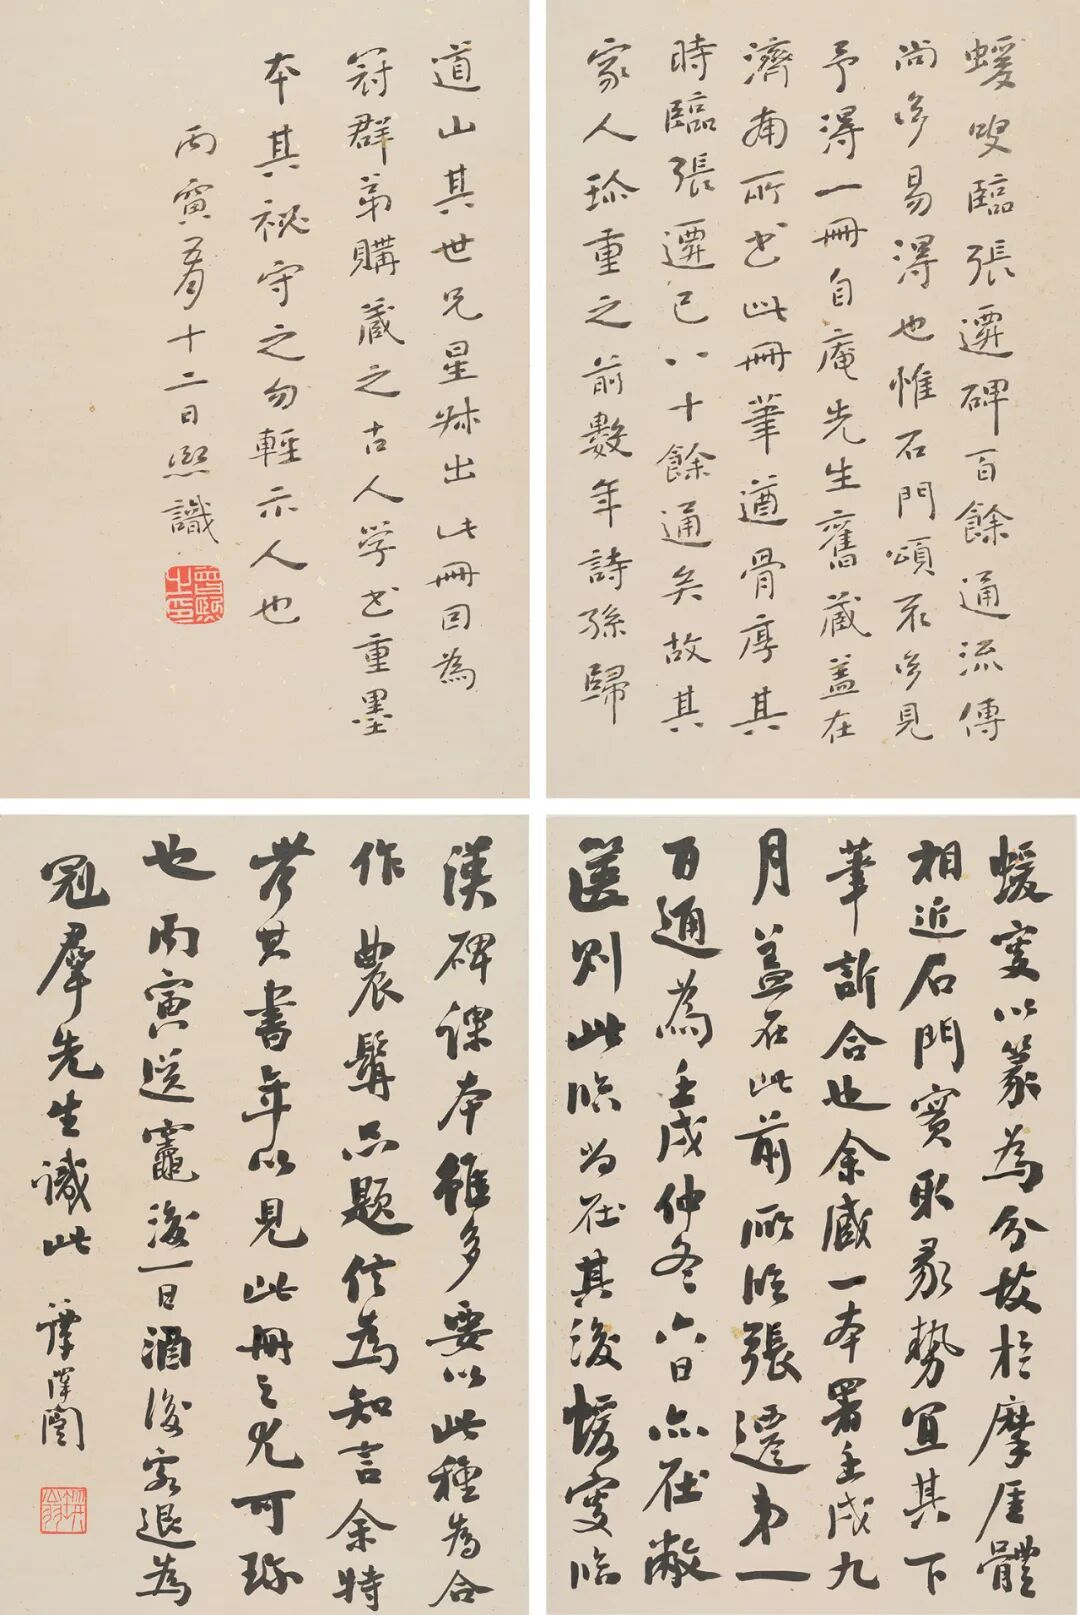 蝯叟臨張遷碑百餘通流傳
尚多易得也惟石門頌不多見
予得一冊自庵先生舊藏蓋在
濟南所書此冊筆遒骨厚其
時臨張遷已八十餘通矣故其
家人珍重之前數年詩孫歸
道山其世兄星叔出此冊因為
冠群弟購藏之古人學書重墨
本其祕守之勿輕示人也
丙寅五月十二日熙識
曾熙之印
蝯叟以篆為分故於摩厓體
相近石門實取篆勢宜其下
筆訢合也余藏一本署壬戌九
月蓋在此前所臨張遷弟一
百通為壬戌仲冬六日亦在敝
篋則此臨當在其後蝯叟臨
漢碑課本雖多要以此種為合
作農髯品題信為知言余特
考其書年以見此冊之尤可珍
也丙寅送竈後一日酒後客退為
冠羣先生識此 譚澤闓